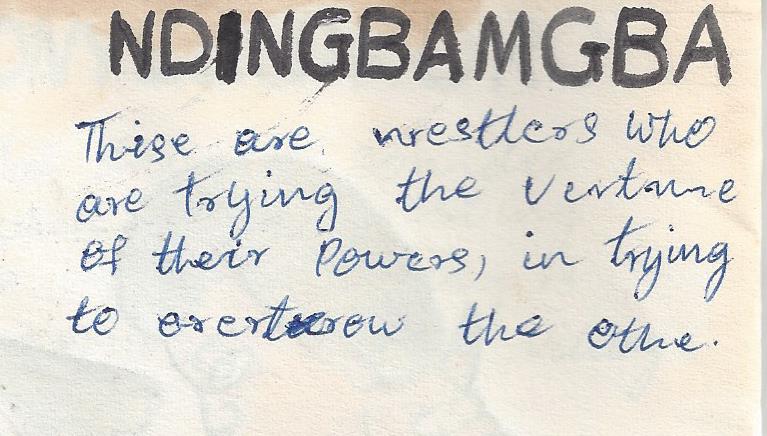 NDINGBAMGBA
Thise are wrestlers who
are trying the Vertune
of their Powers, in trying
to overturow the othe.